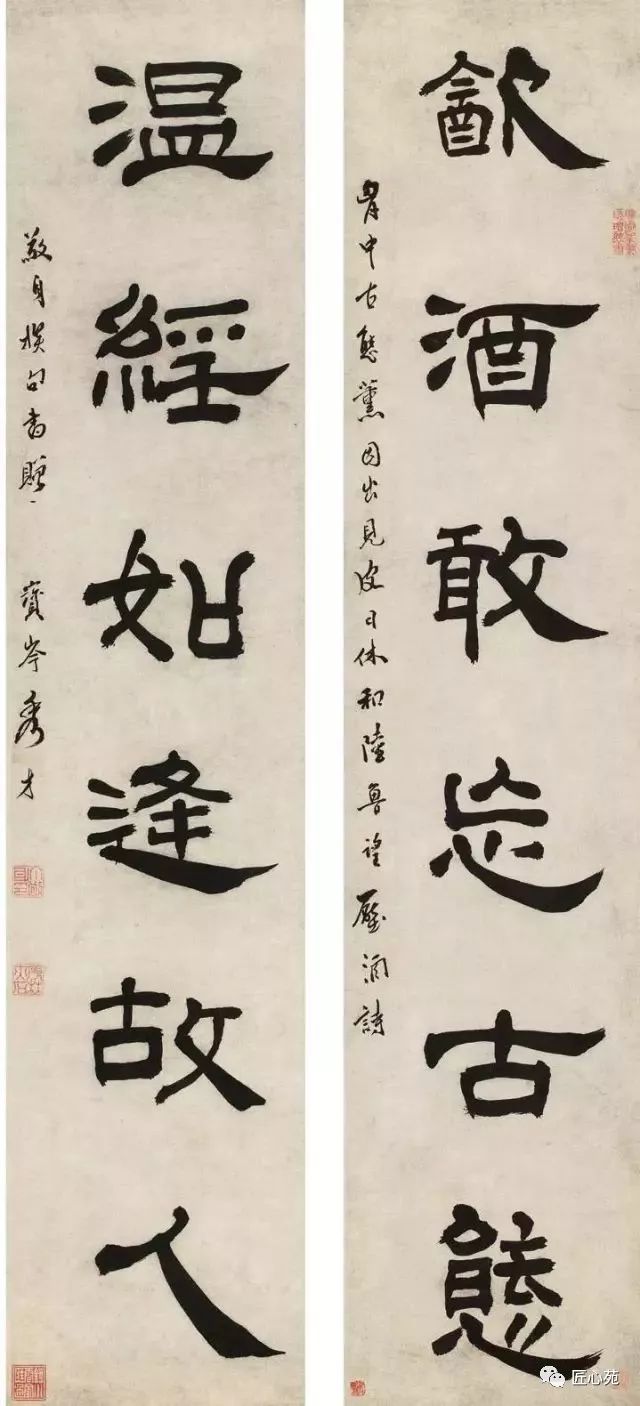 㱃酒敢忘古態
中古態薰因出見皮日休和陸魯望壓酒詩
温經如逢故人
敬身句書贈
寶岑秀才
匠心苑